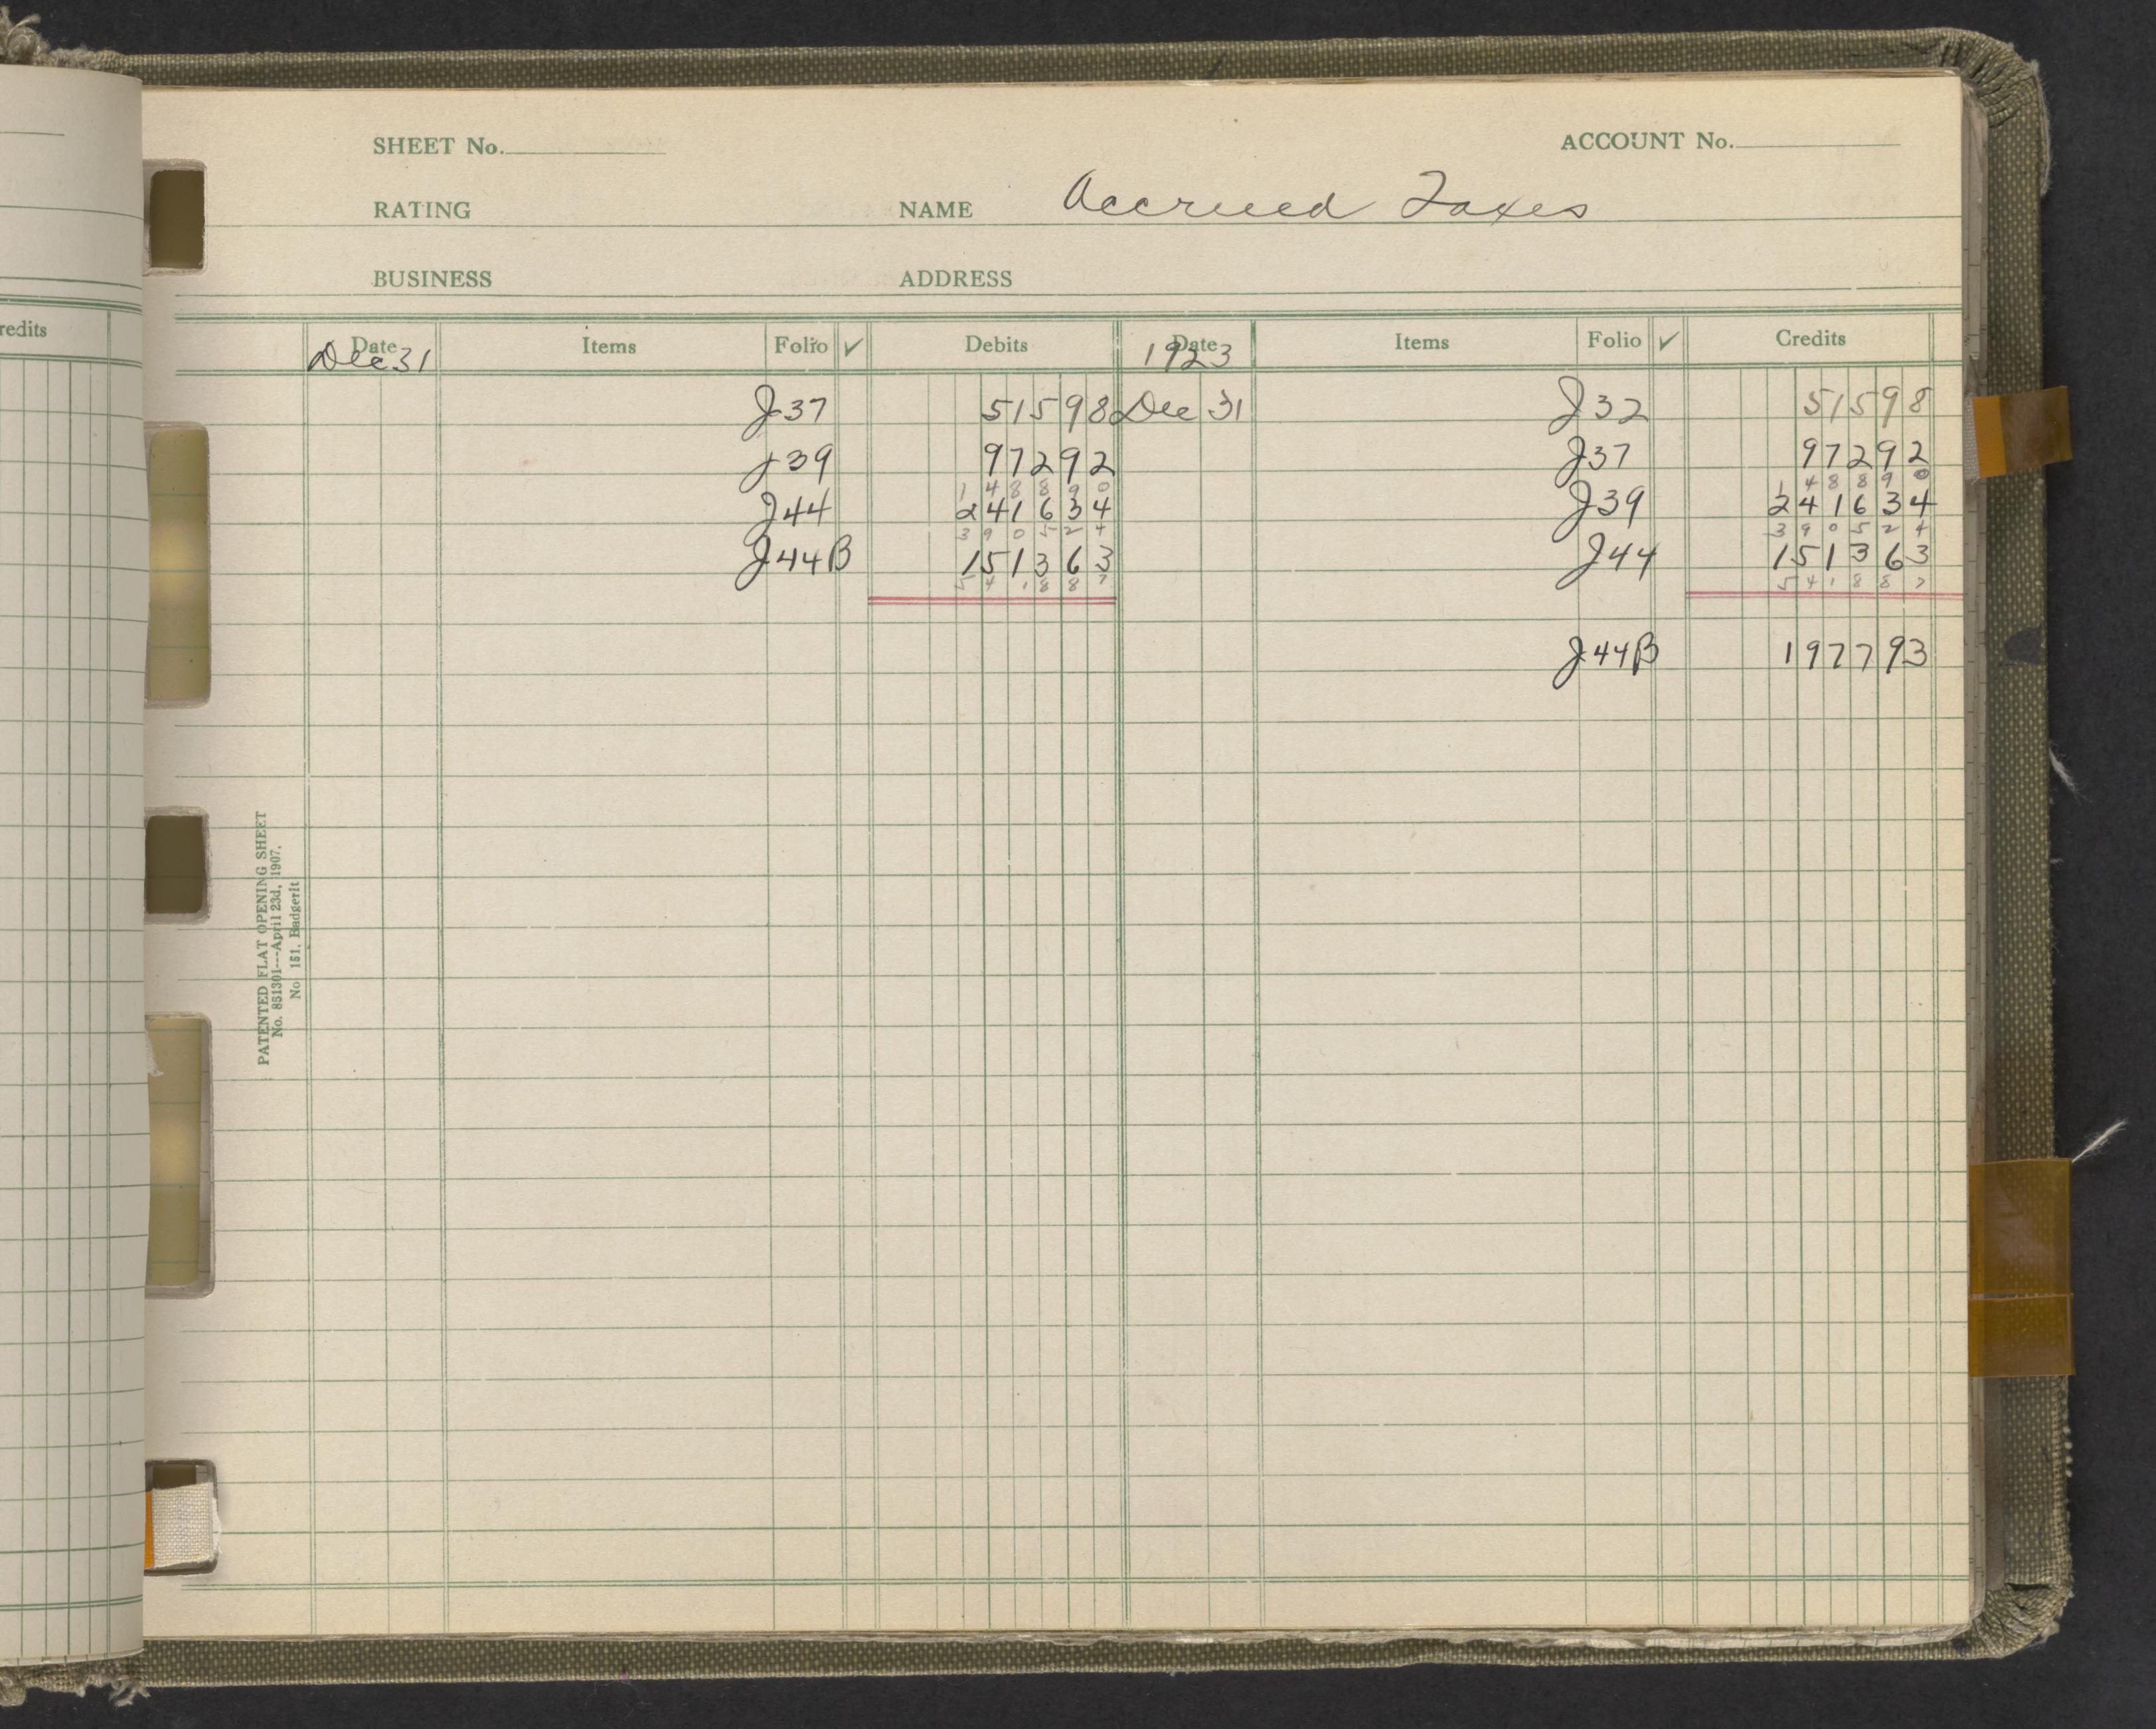 redits
SHEET No. ACCOUNT No.
RATING NAME Accrued Taxes
BUSINESS ADDRESS
Date Items Folio ✓ Debits Date Items Folio ✓ Credits
Dec 31 1923
J37 51598 Dec 31 J32 51598
J39 97292 J37 97292
148890 148890
J44 241634 J39 241634
390524 390524
J44B 151363 J44 151363
541887 541887
J44B 197793
PATENTED FLAT OPENING SHEET
No. 851301---April 23d, 1907.
No 161, Badgerlt